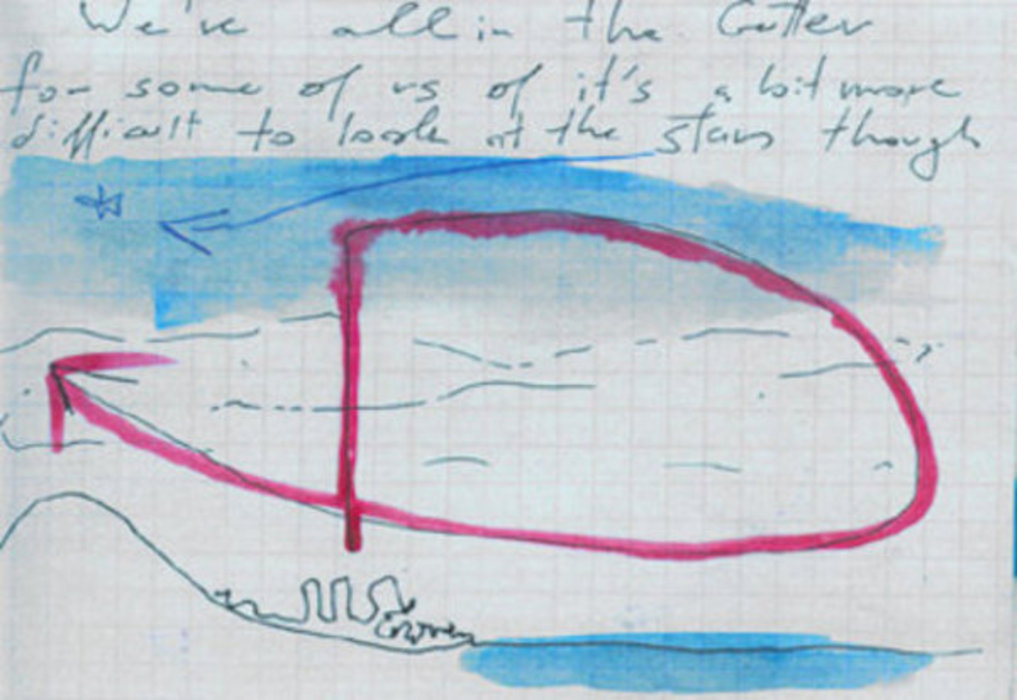 We've all in the Gutter
for some of us of it's a bit more
difficult to look at the stars though